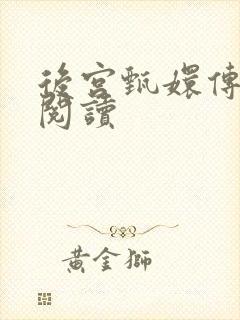 後宮甄嬛傳
閱讀
黃金獅